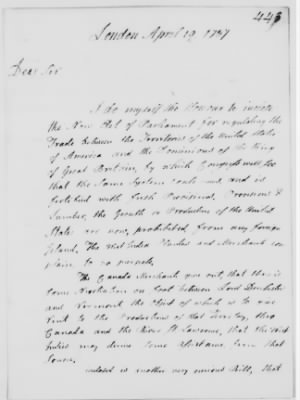 443
London April 19, 1787
Dear Sir
I do myself the Honour to inclose
the New Act of Parliament for regulating the
Trade between the Territories of the United States
of America and the Dominions of the King
of Great Britain, by which Congress will see
that the same System continued, and is
fortified with fresh Provisions
Lumber, the Growth or Production of the United
States are now, prohibited, from any foreign
Island, The West India Planters and Merchants
The Canada Merchants give out, that there is
some Negotiation on foot between Lord Dorchester
and Vermont the Object of which is to
vent to the Productions of that Territory, thro
Canada and the River St Lawrence, that the West
Indies may derive some Assistance from that
Source,
inclosed is another very curious Bill, that